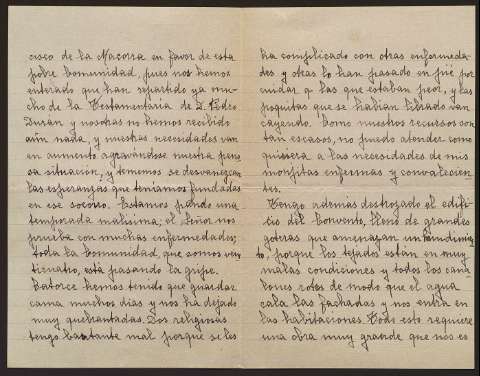 cisco de la Nacorra en favor de esta
pobre Comunidad, pues nos hemos
enterado que han repartido ya mu-
cho de la Testamentaría de D. Pedro
Durán y nosotras ni hemos recibido
aún nada, y nuestras necesidades van
en aumento agravándose nuestra peno-
sa situación, y tememos se desvanezcan
las esperanzas que teníamos fundadas
en ese socorro. Estamos pasando una
temporada malísima; el Señor nos
prueba con muchas enfermedades;
toda la Comunidad, que somos vein
ticuatro, está pasando la gripe.
Catorce hemos tenido que guardar
cama muchos días y nos ha dejado
muy quebrantadas. Dos religiosas
tengo bastante mal porque se les
ha complicado con otras enfermeda-
des y otras lo han pasado en pie por
cuidar a las que estaban peor, y las
poquitas que se habían librado van
cayendo. Como nuestros recursos son
tan escasos, no puedo atender como
quisiera a las necesidades de mis
monjitas enfermas y convalecien-
tes.
Tengo además destrozado el edifi-
cio del Convento, lleno de grandes
goteras que amenazan un hundimien-
to, porque los tejados están en muy
malas condiciones y todos los cana-
lones rotos de modo que el agua
cala las fachadas y nos entra en
las habitaciones. Todo esto requiere
una obra muy grande que nos es